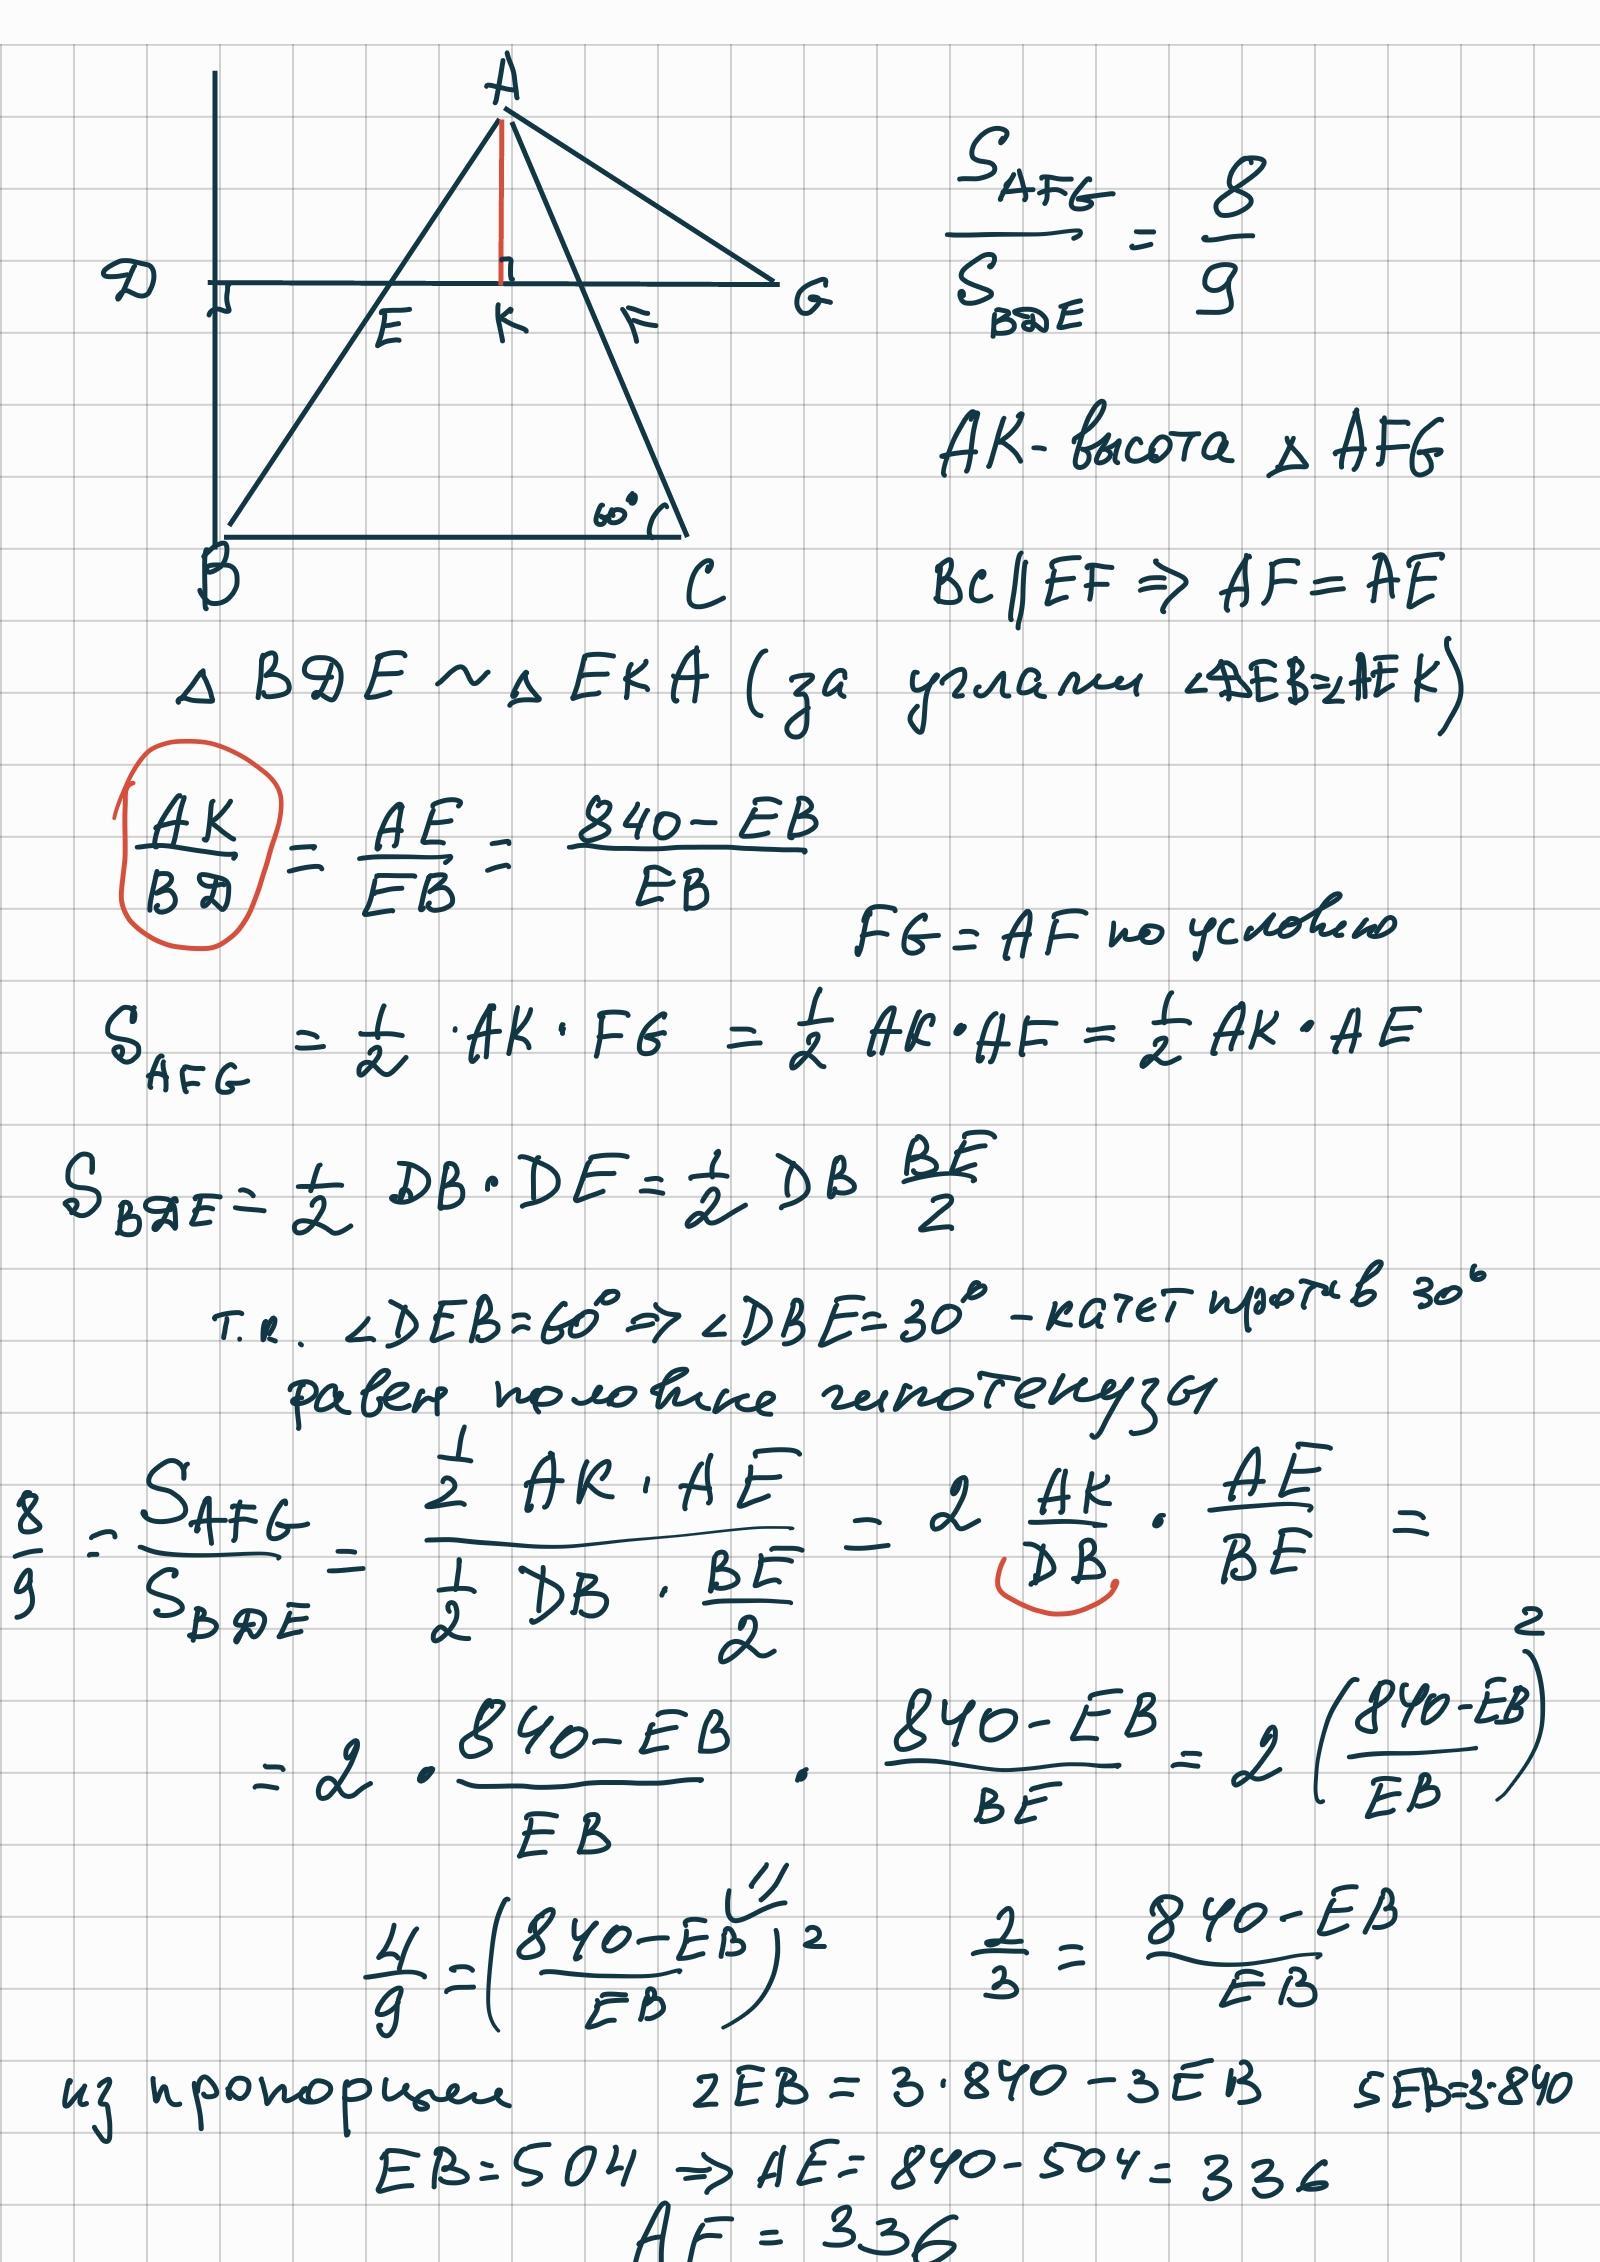 A
D E K F G
60°
B C
S_AFG / S_BDE = 8/9
AK - высота △ AFG
BC || EF ⇒ AF = AE
△ BDE ~ △ EKA (за углами ∠DEB=∠AEK)
AK/BD = AE/EB = (840 - EB)/EB
FG = AF по условию
S_AFG = 1/2 · AK · FG = 1/2 AK · AF = 1/2 AK · AE
S_BDE = 1/2 DB · DE = 1/2 DB BE/2
т.к. ∠DEB = 60° ⇒ ∠DBE = 30° - катет против 30°
равен половине гипотенузы
8/9 = S_AFG / S_BDE = (1/2 AK · AE)/(1/2 DB · BE/2) = 2 AK/DB · AE/BE =
= 2 · (840 - EB)/EB · (840 - EB)/BE = 2 ((840 - EB)/EB)²
4/9 = ((840 - EB)/EB)² ⇒ 2/3 = (840 - EB)/EB
из пропорции 2EB = 3·840 - 3EB 5EB=3·840
EB = 504 ⇒ AE = 840 - 504 = 336
AF = 336